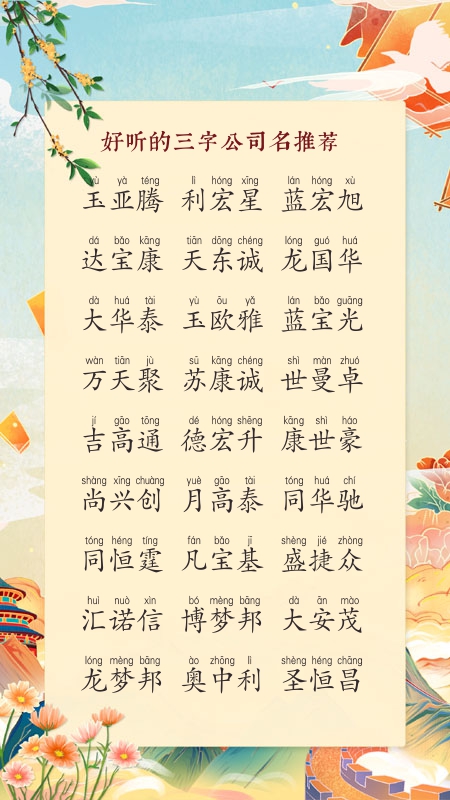 好听的三字公司名推荐
yù yà téng lì hóng xīng lán hóng xù
玉亚腾 利宏星 蓝宏旭
dá bǎo kāng tiān dōng chéng lóng guó huá
达宝康 天东诚 龙国华
dà huá tài yù ōu yǎ lán bǎo guāng
大华泰 玉欧雅 蓝宝光
wàn tiān jù sū kāng chéng shì màn zhuó
万天聚 苏康诚 世曼卓
jí gāo tōng dé hóng shēng kāng shì háo
吉高通 德宏升 康世豪
shàng xīng chuàng yuè gāo tài tóng huá chí
尚兴创 月高泰 同华驰
tóng héng tíng fán bǎo jī shèng jié zhòng
同恒霆 凡宝基 盛捷众
huì nuò xìn bó mèng bāng dà ān mào
汇诺信 博梦邦 大安茂
lóng mèng bāng ào zhōng lì shèng héng chāng
龙梦邦 奥中利 圣恒昌